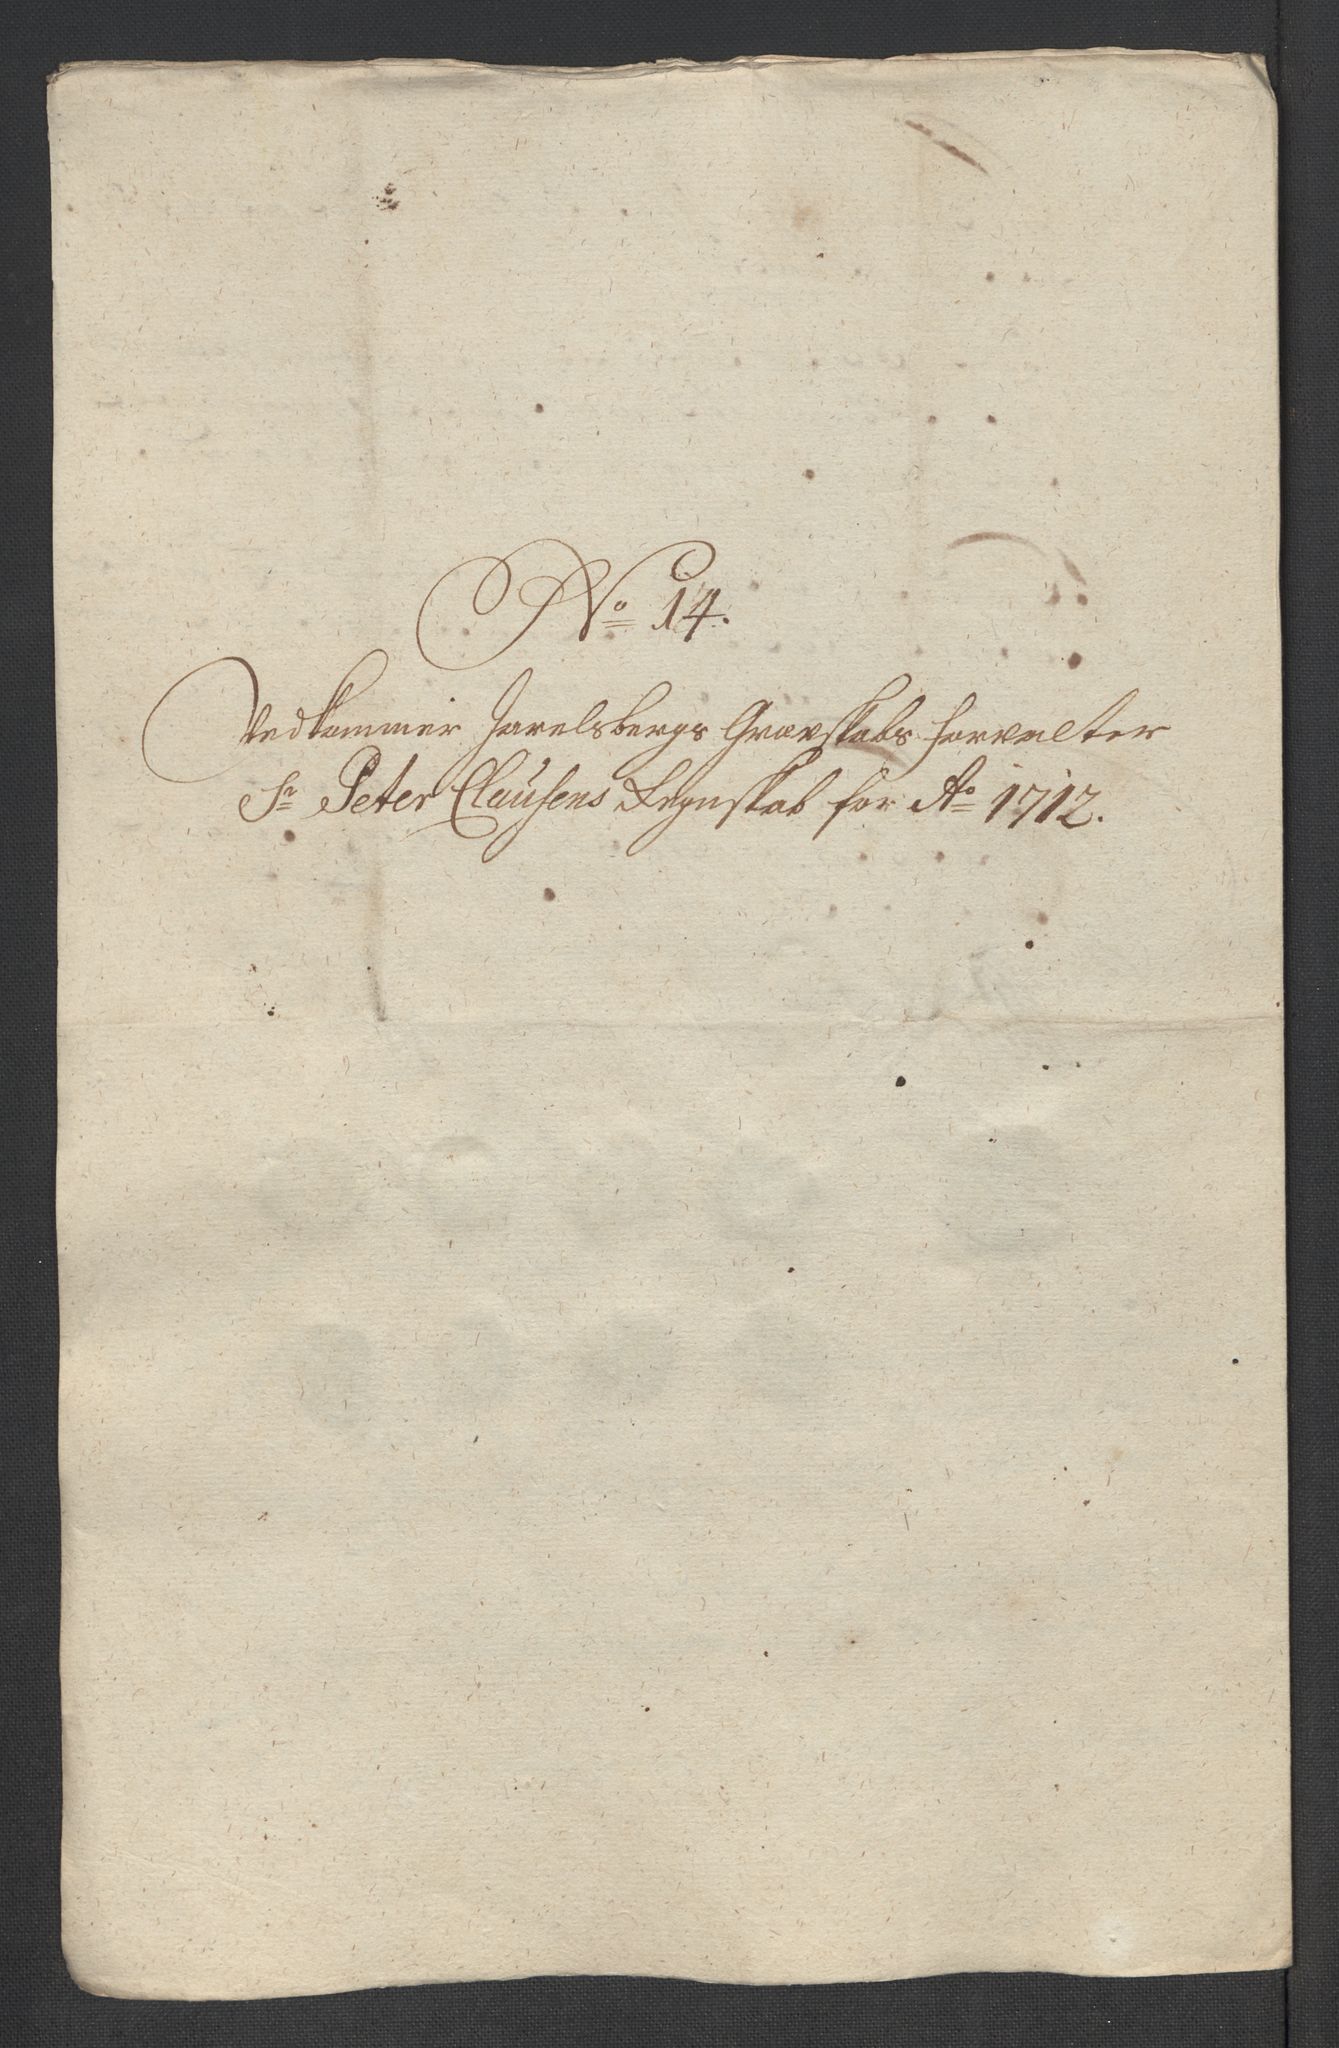 No 14.
Vedkommer Jarelsbergs Grævskabs forvalter
Sr Peter Clausens Regnskab for Ao 1712.